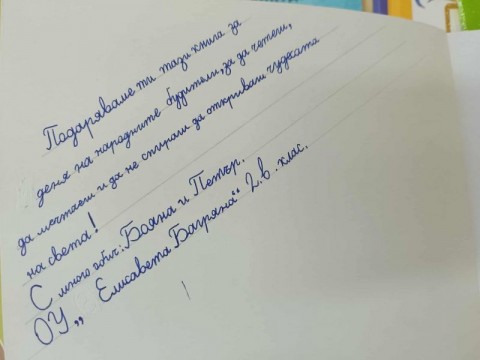 Подаряваме ти тази книга за
деня на народните будители, за да четеш,
да мечтаеш и да не спираш да откриваш чудесата
на света!
С много обич: Бояна и Петър.
ОУ „Елисавета Багряна“ 2.в. клас.